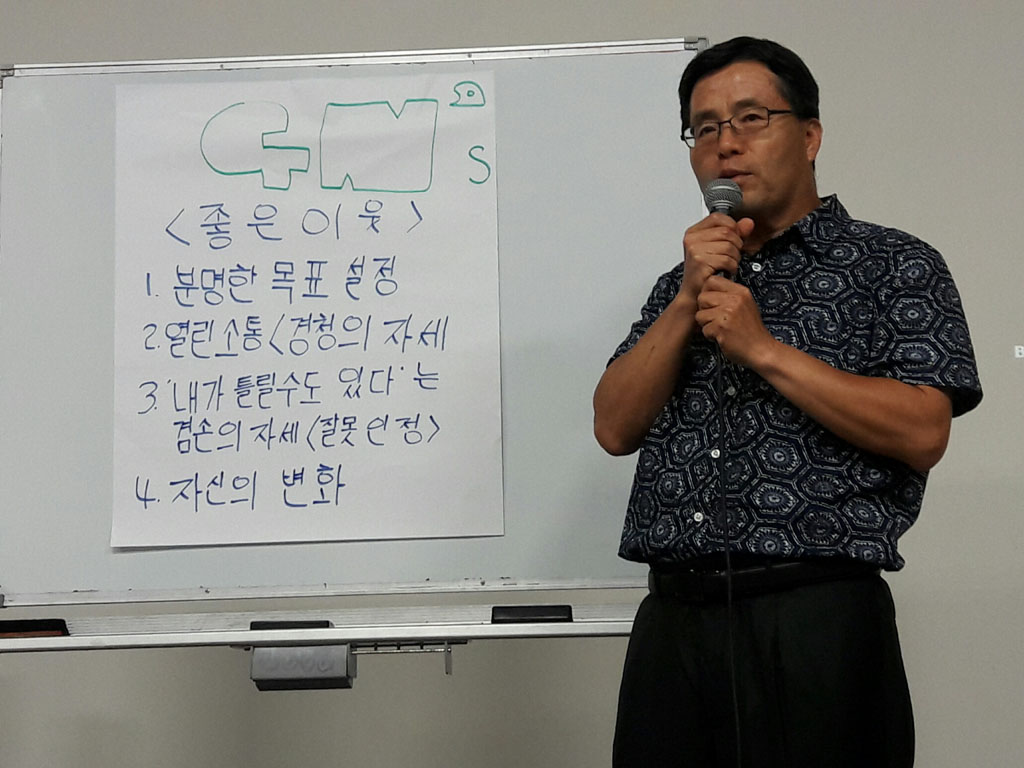 GN
S
<좋은 이웃>
1. 분명한 목표 설정
2. 열린소통<경청의 자세
3. '내가 틀릴수도 있다'는
겸손의 자세<잘못 인정>
4. 자신의 변화